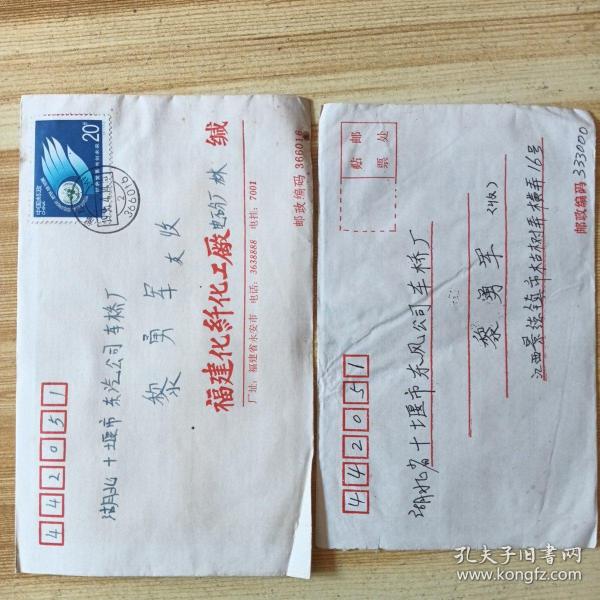 442051
湖北 十堰市东汽公司车桥厂
黎勇军 大收
福建化纤化工厂 电石厂 林 缄
厂址：福建省永安市 电话：3638888 电挂：7001
邮政编码 366016
中国邮政
20分
366016
贴邮
票处
442051
湖北省十堰市东风公司车桥厂
黎勇军 (收)
江西景德镇市枯树弄横弄16号
邮政编码 333000
孔夫子旧书网
www.kongfz.com